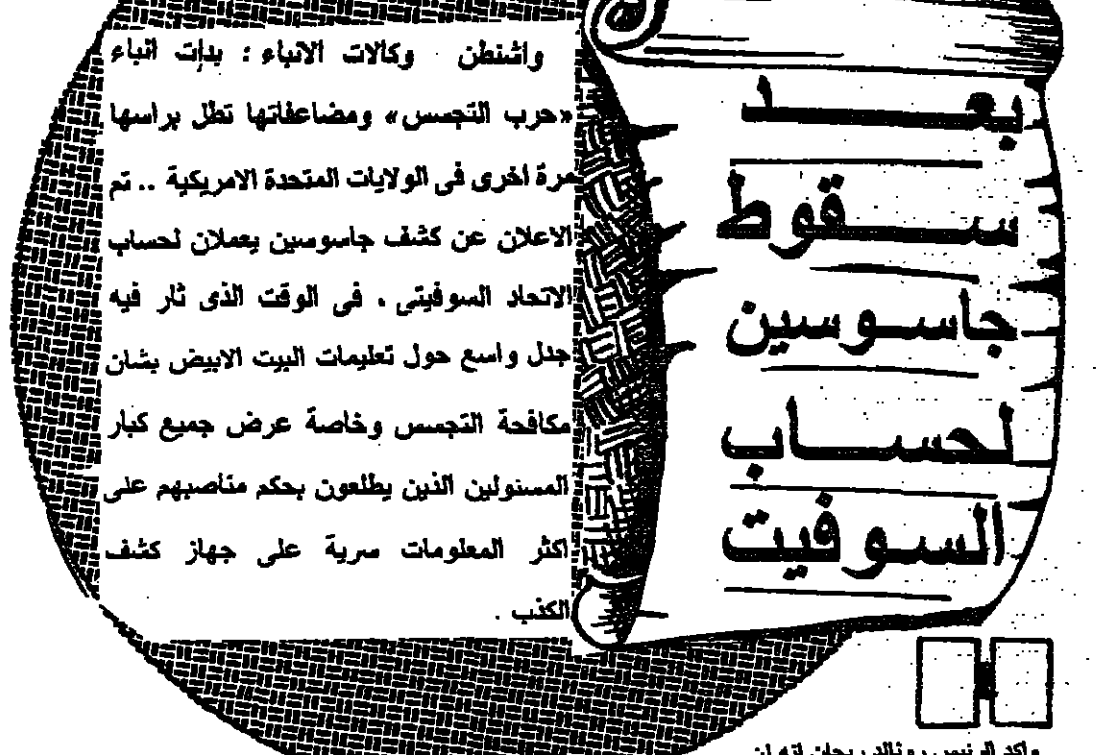 بعد
سقوط
جاسوسين
لحساب
السوفيت
واشنطن وكالات الانباء : بدات انباء
«حرب التجسس» ومضاعفاتها تطل براسها
مرة اخرى فى الولايات المتحدة الامريكية .. تم
الاعلان عن كشف جاسوسين يعملان لحساب
الاتحاد السوفيتى . فى الوقت الذى ثار فيه
جدل واسع حول تعليمات البيت الابيض بشان
مكافحة التجسس وخاصة عرض جميع كبار
المسئولين الذين يطلعون بحكم مناصبهم على
اكثر المعلومات سرية على جهاز كشف
الكذب .
واكد الرئيس رونالد ريجان انه لن